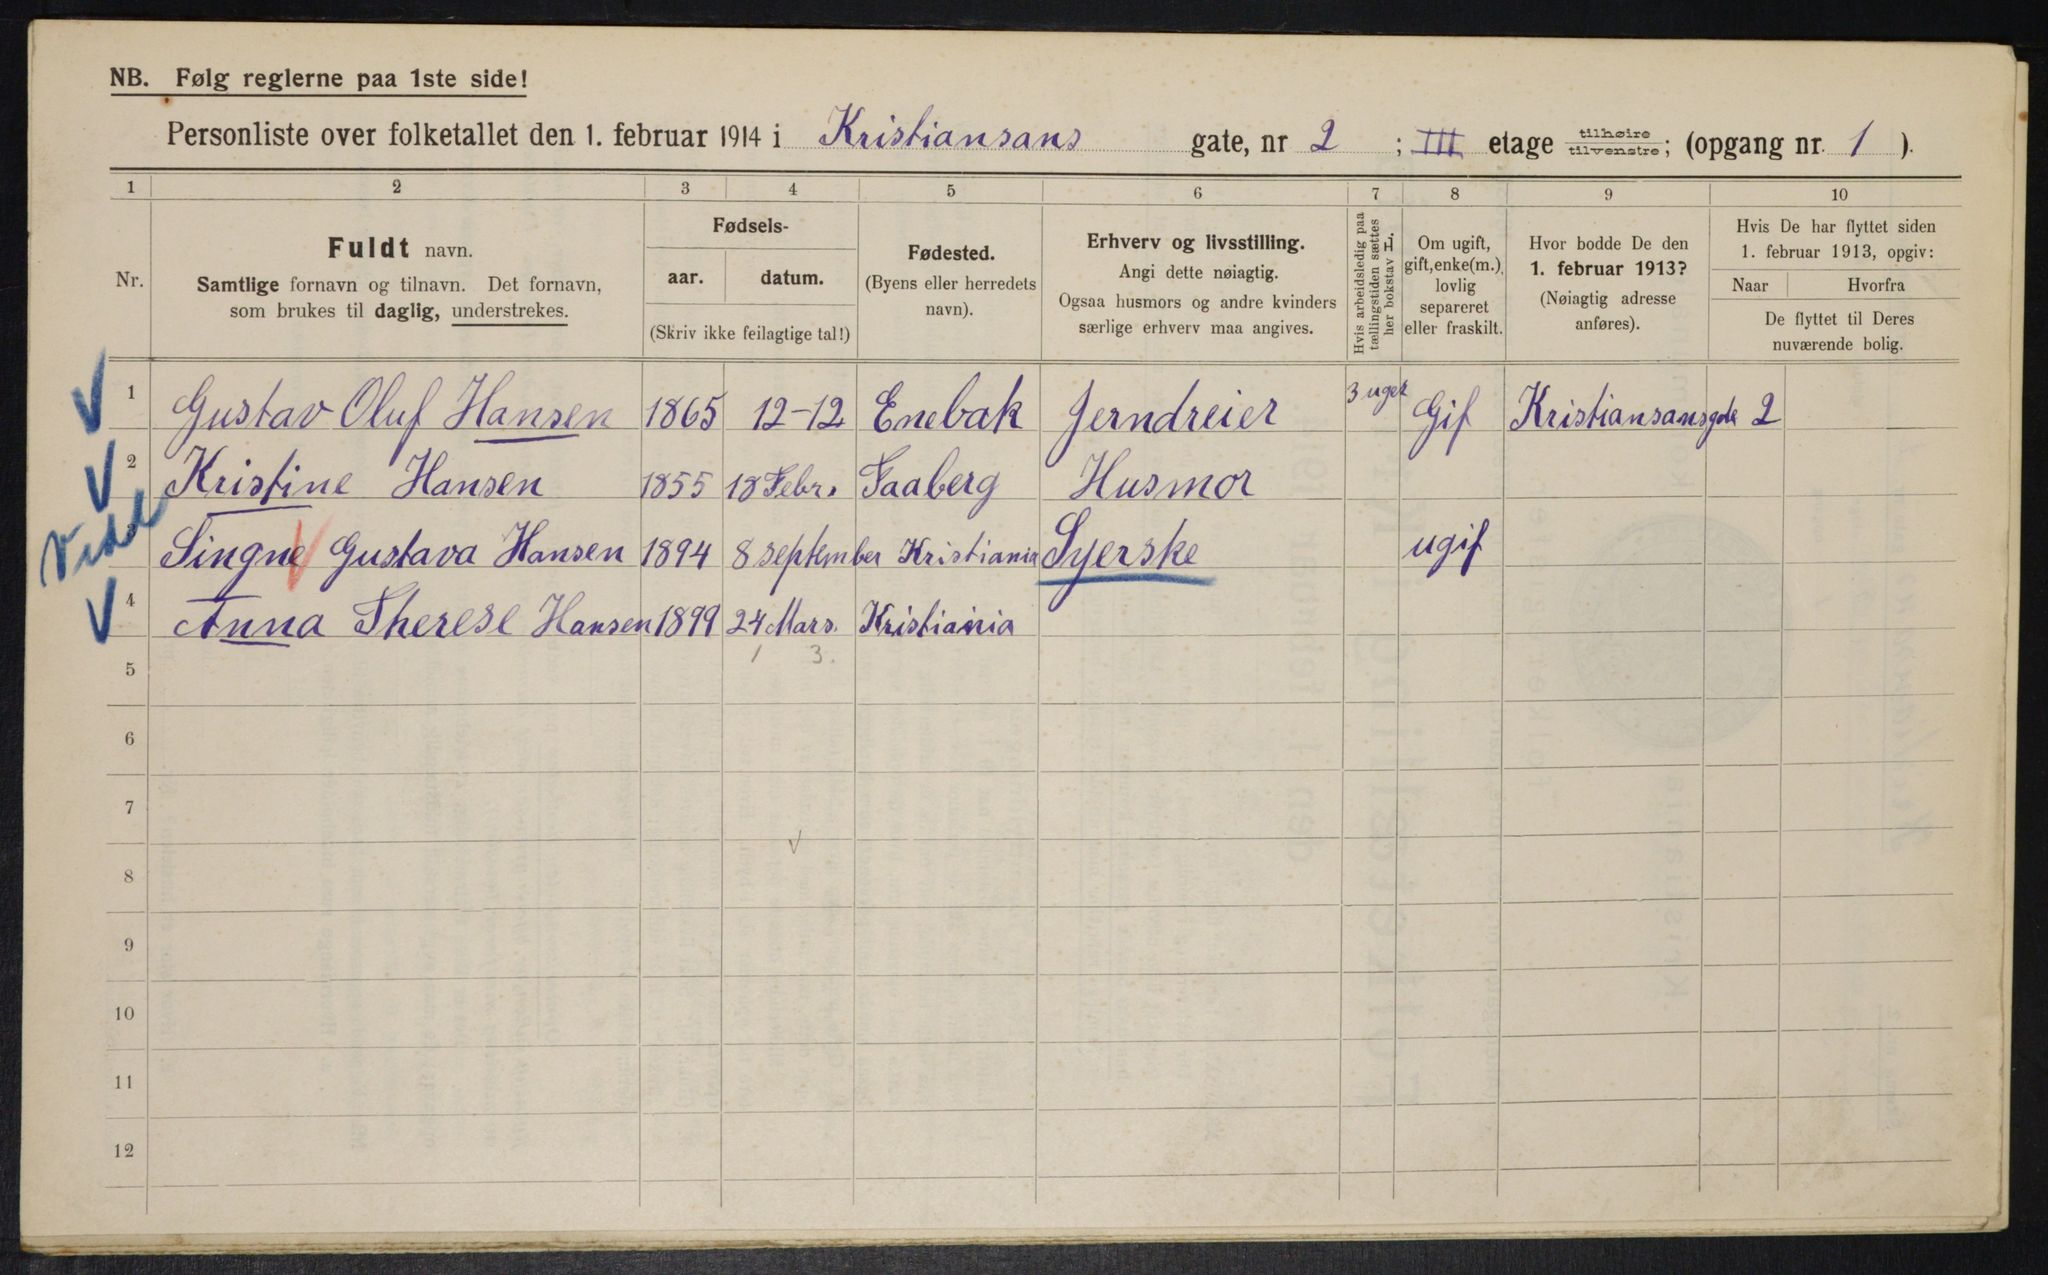 NB. Følg reglerne paa 1ste side!
Personliste over folketallet den 1. februar 1914 i Kristiansans gate, nr 2 ; III etage tilhøire tilvenstre; (opgang nr. 1 ).
1 2 3 4 5 6 7 8 9 10
Nr.
Fuldt navn.
Samtlige fornavn og tilnavn. Det fornavn,
som brukes til daglig, understrekes.
Fødsels-
aar. datum.
(Skriv ikke feilagtige tal!)
Fødested.
(Byens eller herredets
navn).
Erhverv og livsstilling.
Angi dette nøiagtig.
Ogsaa husmors og andre kvinders
særlige erhverv maa angives.
Hvis arbeidsledig paa
tællingstiden sættes
her bokstav L.
Om ugift,
gift, enke(m.),
lovlig
separeret
eller fraskilt.
Hvor bodde De den
1. februar 1913?
(Nøiagtig adresse
anføres).
Hvis De har flyttet siden
1. februar 1913, opgiv:
Naar Hvorfra
De flyttet til Deres
nuværende bolig.
1 Gustav Oluf Hansen 1865 12-12 Enebak Jerndreier 3 uger Gif Kristiansansgde 2
2 Kristine Hansen 1855 18 Febr. Faaberg Husmor
3 Singne Gustava Hansen 1894 8 september Kristiania Syerske ugif
4 Anna Therese Hansen 1899 24 Mars. Kristiania
1 3.
5
6
7
8
9
10
11
12